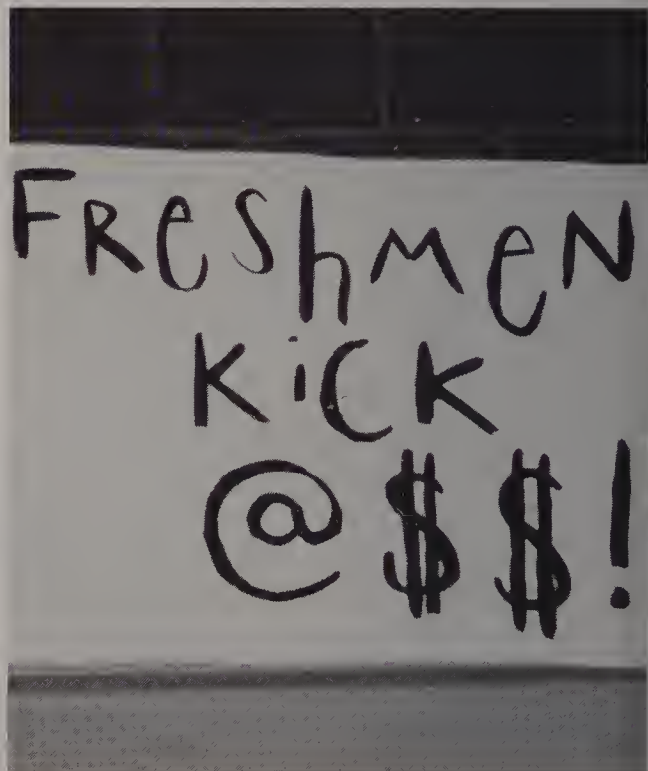 FReShMeN
KiCK
@$$!